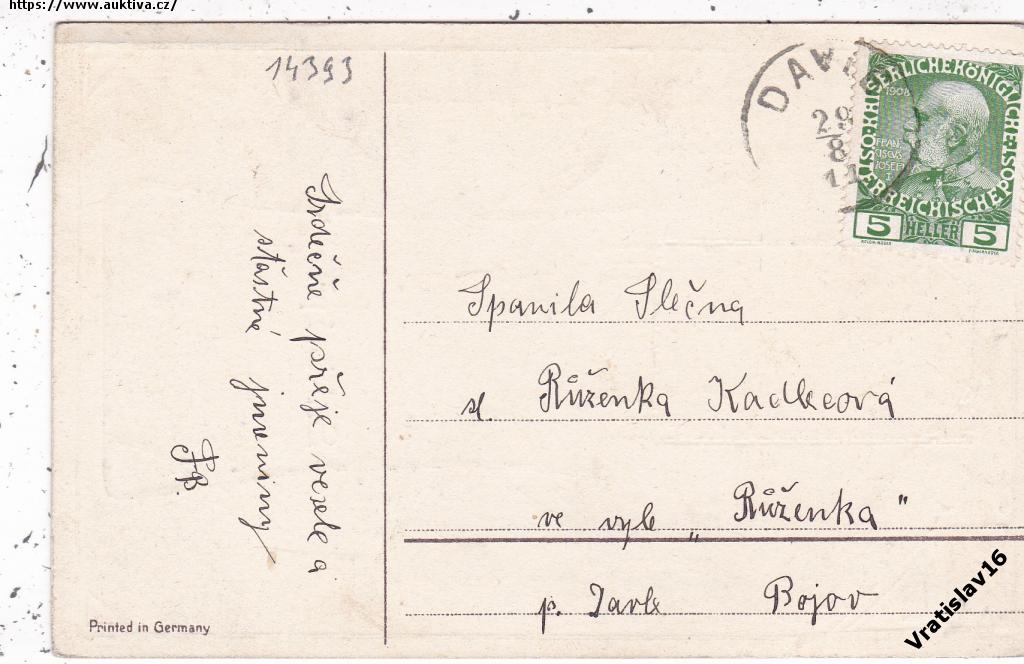 https://www.auktiva.cz/
14393
Srdečně přeje veselé a
šťastné jmeniny
DAVLE
29
8
11
KAISERLICHE KÖNIGLICHE ÖSTERREICHISCHE POST
1908
FRAN
CISCVS
IOSEF
I
5 HELLER 5
Spanilá Slečna
sl. Růženka Kadlecová
ve vyle „Růženka“
p. Davle Bojov
Printed in Germany
Vratislav16